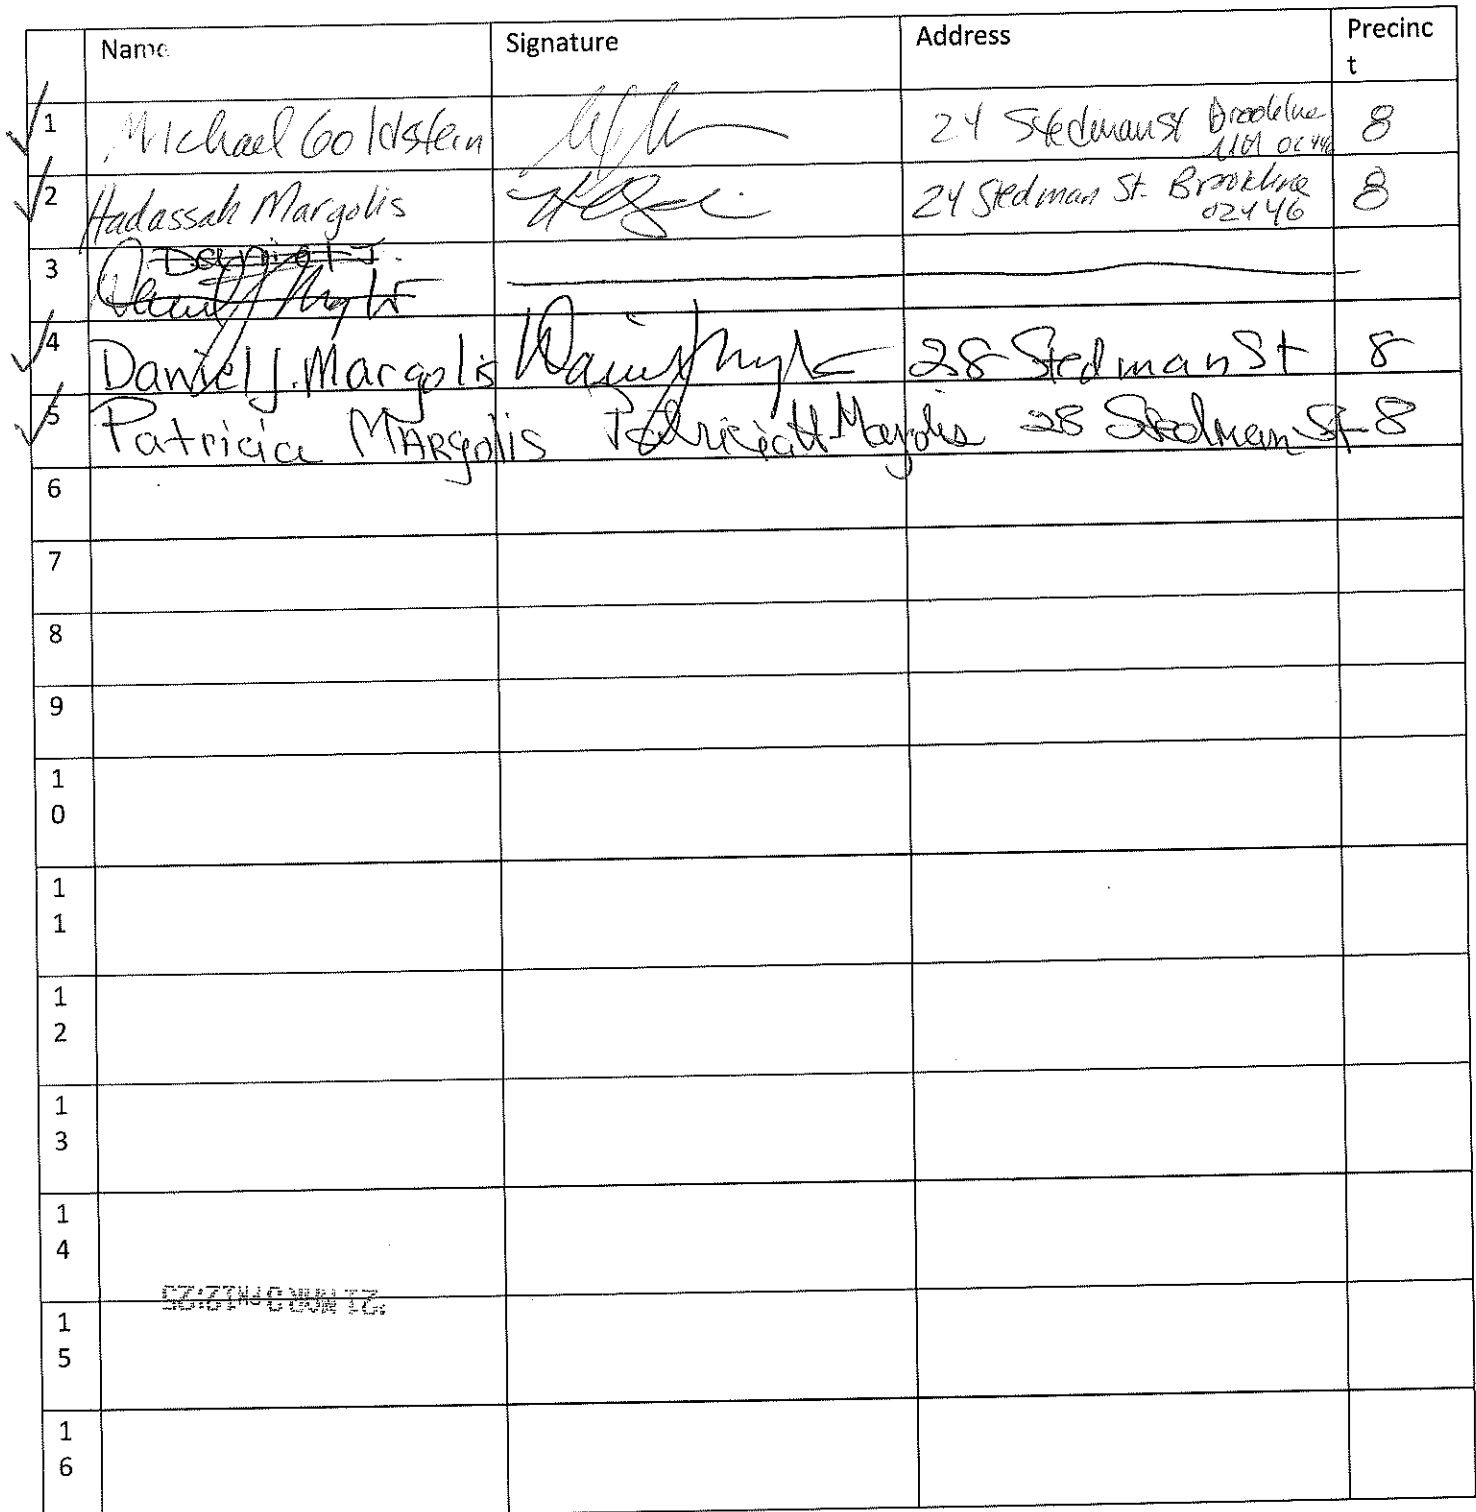 Name Signature Address Precinc
t
1 Michael Goldstein 24 Stedman St Brookline
MA 8
2 Hadassah Margolis 24 Stedman St. Brookline
02446 8
3 Daniel J.
4 Daniel J. Margolis 28 Stedman St 8
5 Patricia MARgolis Patricia H Margolis 28 Stedman St 8
6
7
8
9
1
0
1
1
1
2
1
3
1
4
'21 MAR 9 PM12:25
1
5
1
6